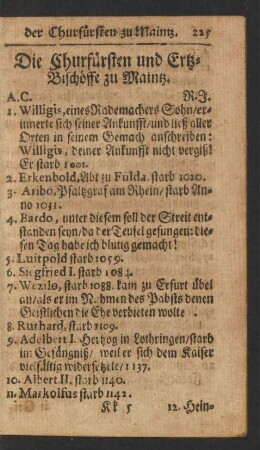 der Churfürsten zu Maintz. 225
Die Churfürsten und Ertz-
Bischöffe zu Maintz.
A.C. R.J.
1. Willigis, eines Rademachers Sohn/er-
innerte sich seiner Ankunfft/und ließ aller
Orten in seinem Gemach anschreiben:
Willigis, deiner Ankunfft nicht vergiß!
Er starb 1001.
2. Erkenbold, Abt zu Fulda. starb 1020.
3. Aribo, Pfaltzgraf am Rhein/ starb An-
no 1031.
4. Bardo, unter diesem soll der Streit ent-
standen seyn/da der Teufel gesungen: die-
sen Tag habe ich blutig gemacht!
5. Luitpold starb 1059.
6. Siegfried I. starb 1084.
7. Wezilo, starb 1088. kam zu Erfurt übel
an/als er im Nahmen des Pabsts denen
Geistlichen die Ehe verbieten wolte.
8. Ruthard, starb 1109.
9. Adelbert I. Hertzog in Lothringen/starb
im Gefängniß/ weil er sich dem Kaiser
vielfältig widersetzete/1137.
10. Albert II. starb 1140.
11. Markolfus starb 1142.
Kk 5 12. Hein-